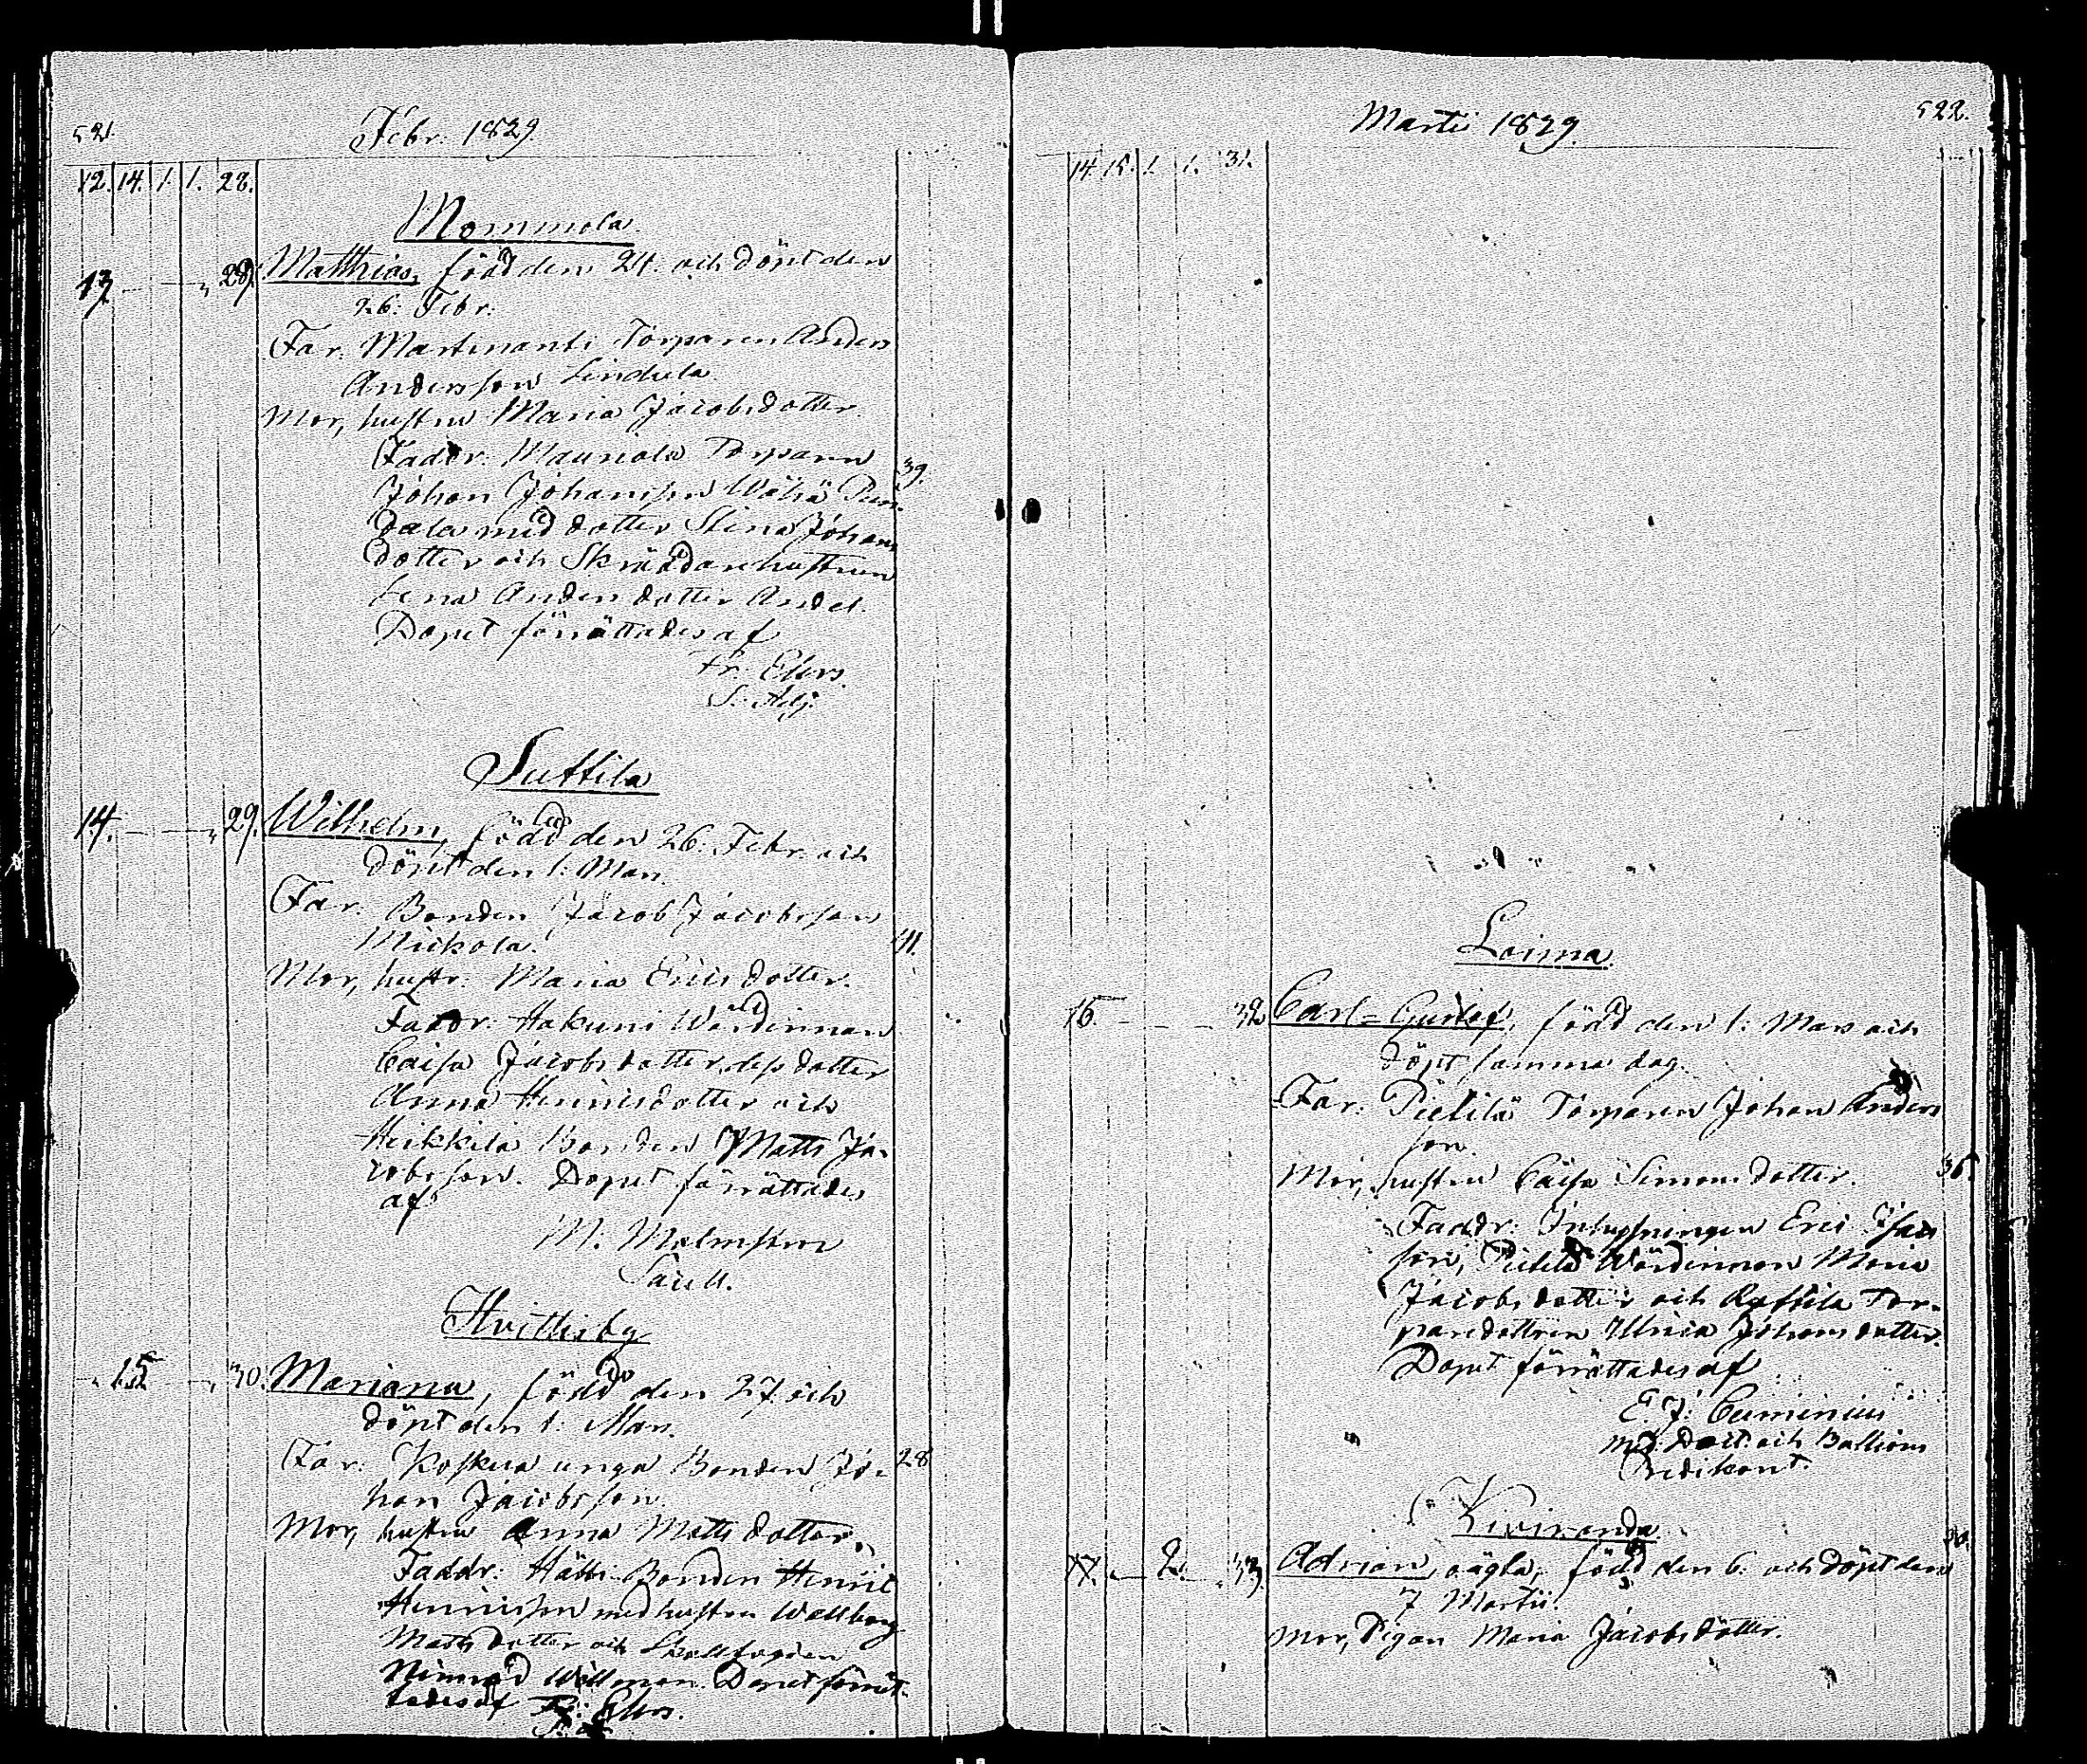 521.
Febr: 1829.
12. 14. 1. 1. 28.
Mommola.
13. 28. Matthias, född den 24. och döpt den
26. Febr:
Far: Torparen Anders
Andersson Lindula.
Mor, hustru Maria Jacobsdotter.
Faddr: Mauriala Torparen
39.
Johan Johansson Wähä
med dotter Stina Johans
dotter och Skräddarehustrun
Lena Andersdotter
Doput förrättades af
Fr: Elers.
S. Adj.
Suttila
14. 29. Wilhelm, född den 26. Febr. och
döpt den 1. Mars.
Far. Bonden Jacob Jacobsson
Mickola. 41.
Mor, hustr: Maria Ericsdotter.
Faddr: Hakuni Wärdinnan
Caisa Jacobsdotter, dess dotter
Anna Henricsdotter och
Heikkilä Bonden Matts Ja-
cobsson. Doput förrättades
af
M: Malmström
Sacell.
Hvittisby
15. 30. Mariana, född den 27. och
döpt den 1. Mars.
Far: Koskua unga Bonden Jo- 28
han Jacobsson.
Mor, hustru Anna Mattsdotter.
Faddr: Hätti Bonden Henric
Henricsson med hustru Wallborg
Mattsdotter och
Wellman. Doput förrät-
tades af Fr: Elers.
Martii 1829.
522.
14. 15. 1. 1. 31.
Loima.
15. 32. Carl-Gustaf, född den 1. Mars och
döpt samma dag.
Far: Pietilä Torparen Johan Anders
son.
Mor, hustru Caisa Simonsdotter. 36.
Faddr: Inhysningen Eric Isacs
son, Pietilä Wärdinnan Maria
Jacobsdotter och Torpare
dottren Ulrica Johansdotter.
Doput förrättades af
E. J. Cuminius
och Batlions
Predikant.
Kiviranda
2. 33. Adrian, oägta, född den 6. och döpt den
7 Martii.
Mor, Pigan Maria Jacobsdotter.